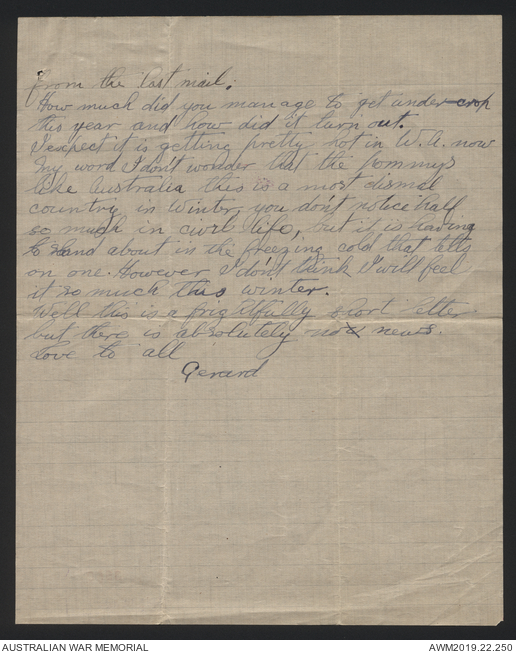 from the last mail.
How much did you manage to get under crop
this year and how did it turn out.
I expect it is getting pretty hot in W.A. now
My word I don't wonder that the pommys
like Australia this is a most dismal
country in Winter, you don't notice half
so much in civil life, but it is having
to stand about in the freezing cold that tells
on one. However I don't think I will feel
it so much this winter.
Well this is a frightfully short letter
but there is absolutely no news.
Love to all
Gerard
AUSTRALIAN WAR MEMORIAL
AWM2019.22.250